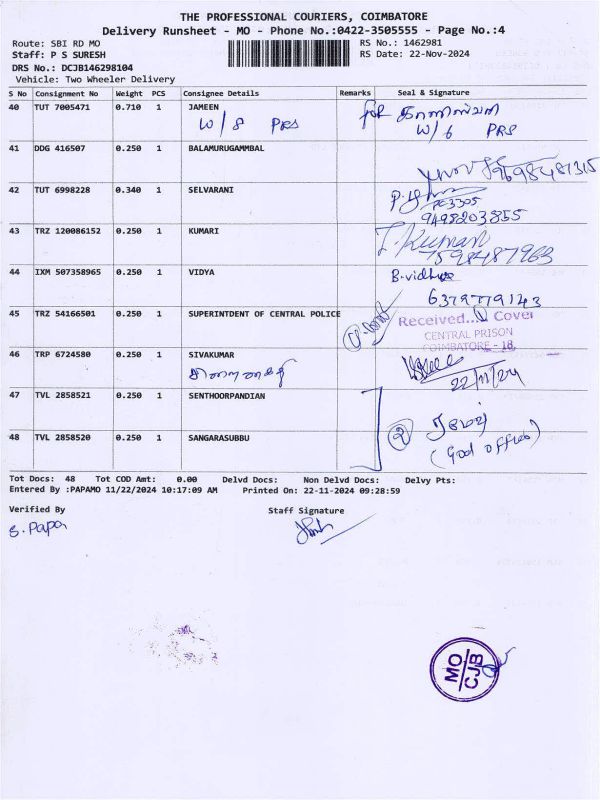 THE PROFESSIONAL COURIERS, COIMBATORE
Delivery Runsheet - MO - Phone No.:0422-3505555 - Page No.:4
Route: SBI RD MO RS No.: 1462981
Staff: P S SURESH RS Date: 22-Nov-2024
DRS No.: DCJB146298104
Vehicle: Two Wheeler Delivery
S No Consignment No Weight PCS Consignee Details Remarks Seal & Signature
40 TUT 7005471 0.710 1 JAMEEN for
W/8 PRS W/6 PRS
41 DDG 416507 0.250 1 BALAMURUGAMMBAL
9698481315
42 TUT 6998228 0.340 1 SELVARANI
PC3305
9498203855
43 TRZ 120086152 0.250 1 KUMARI I. Kumari
7598487963
44 IXM 507358965 0.250 1 VIDYA B.vidhya
6379779143
45 TRZ 54166501 0.250 1 SUPERINTDENT OF CENTRAL POLICE Received... Cover
CENTRAL PRISON
COIMBATORE - 18.
46 TRP 6724580 0.250 1 SIVAKUMAR
22/11/24
47 TVL 2858521 0.250 1 SENTHOORPANDIAN
2
48 TVL 2858520 0.250 1 SANGARASUBBU (God office)
Tot Docs: 48 Tot COD Amt: 0.00 Delvd Docs: Non Delvd Docs: Delvy Pts:
Entered By :PAPAMO 11/22/2024 10:17:09 AM Printed On: 22-11-2024 09:28:59
Verified By Staff Signature
S. Papa
MO
CJB